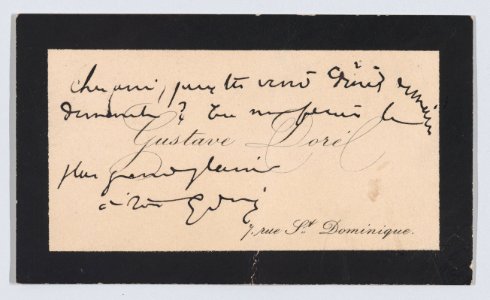 Cher ami, peux tu venir dîner
dimanche ? Tu me feras le
Gustave Doré
plus grand plaisir
à toi G Doré
7, rue St. Dominique.